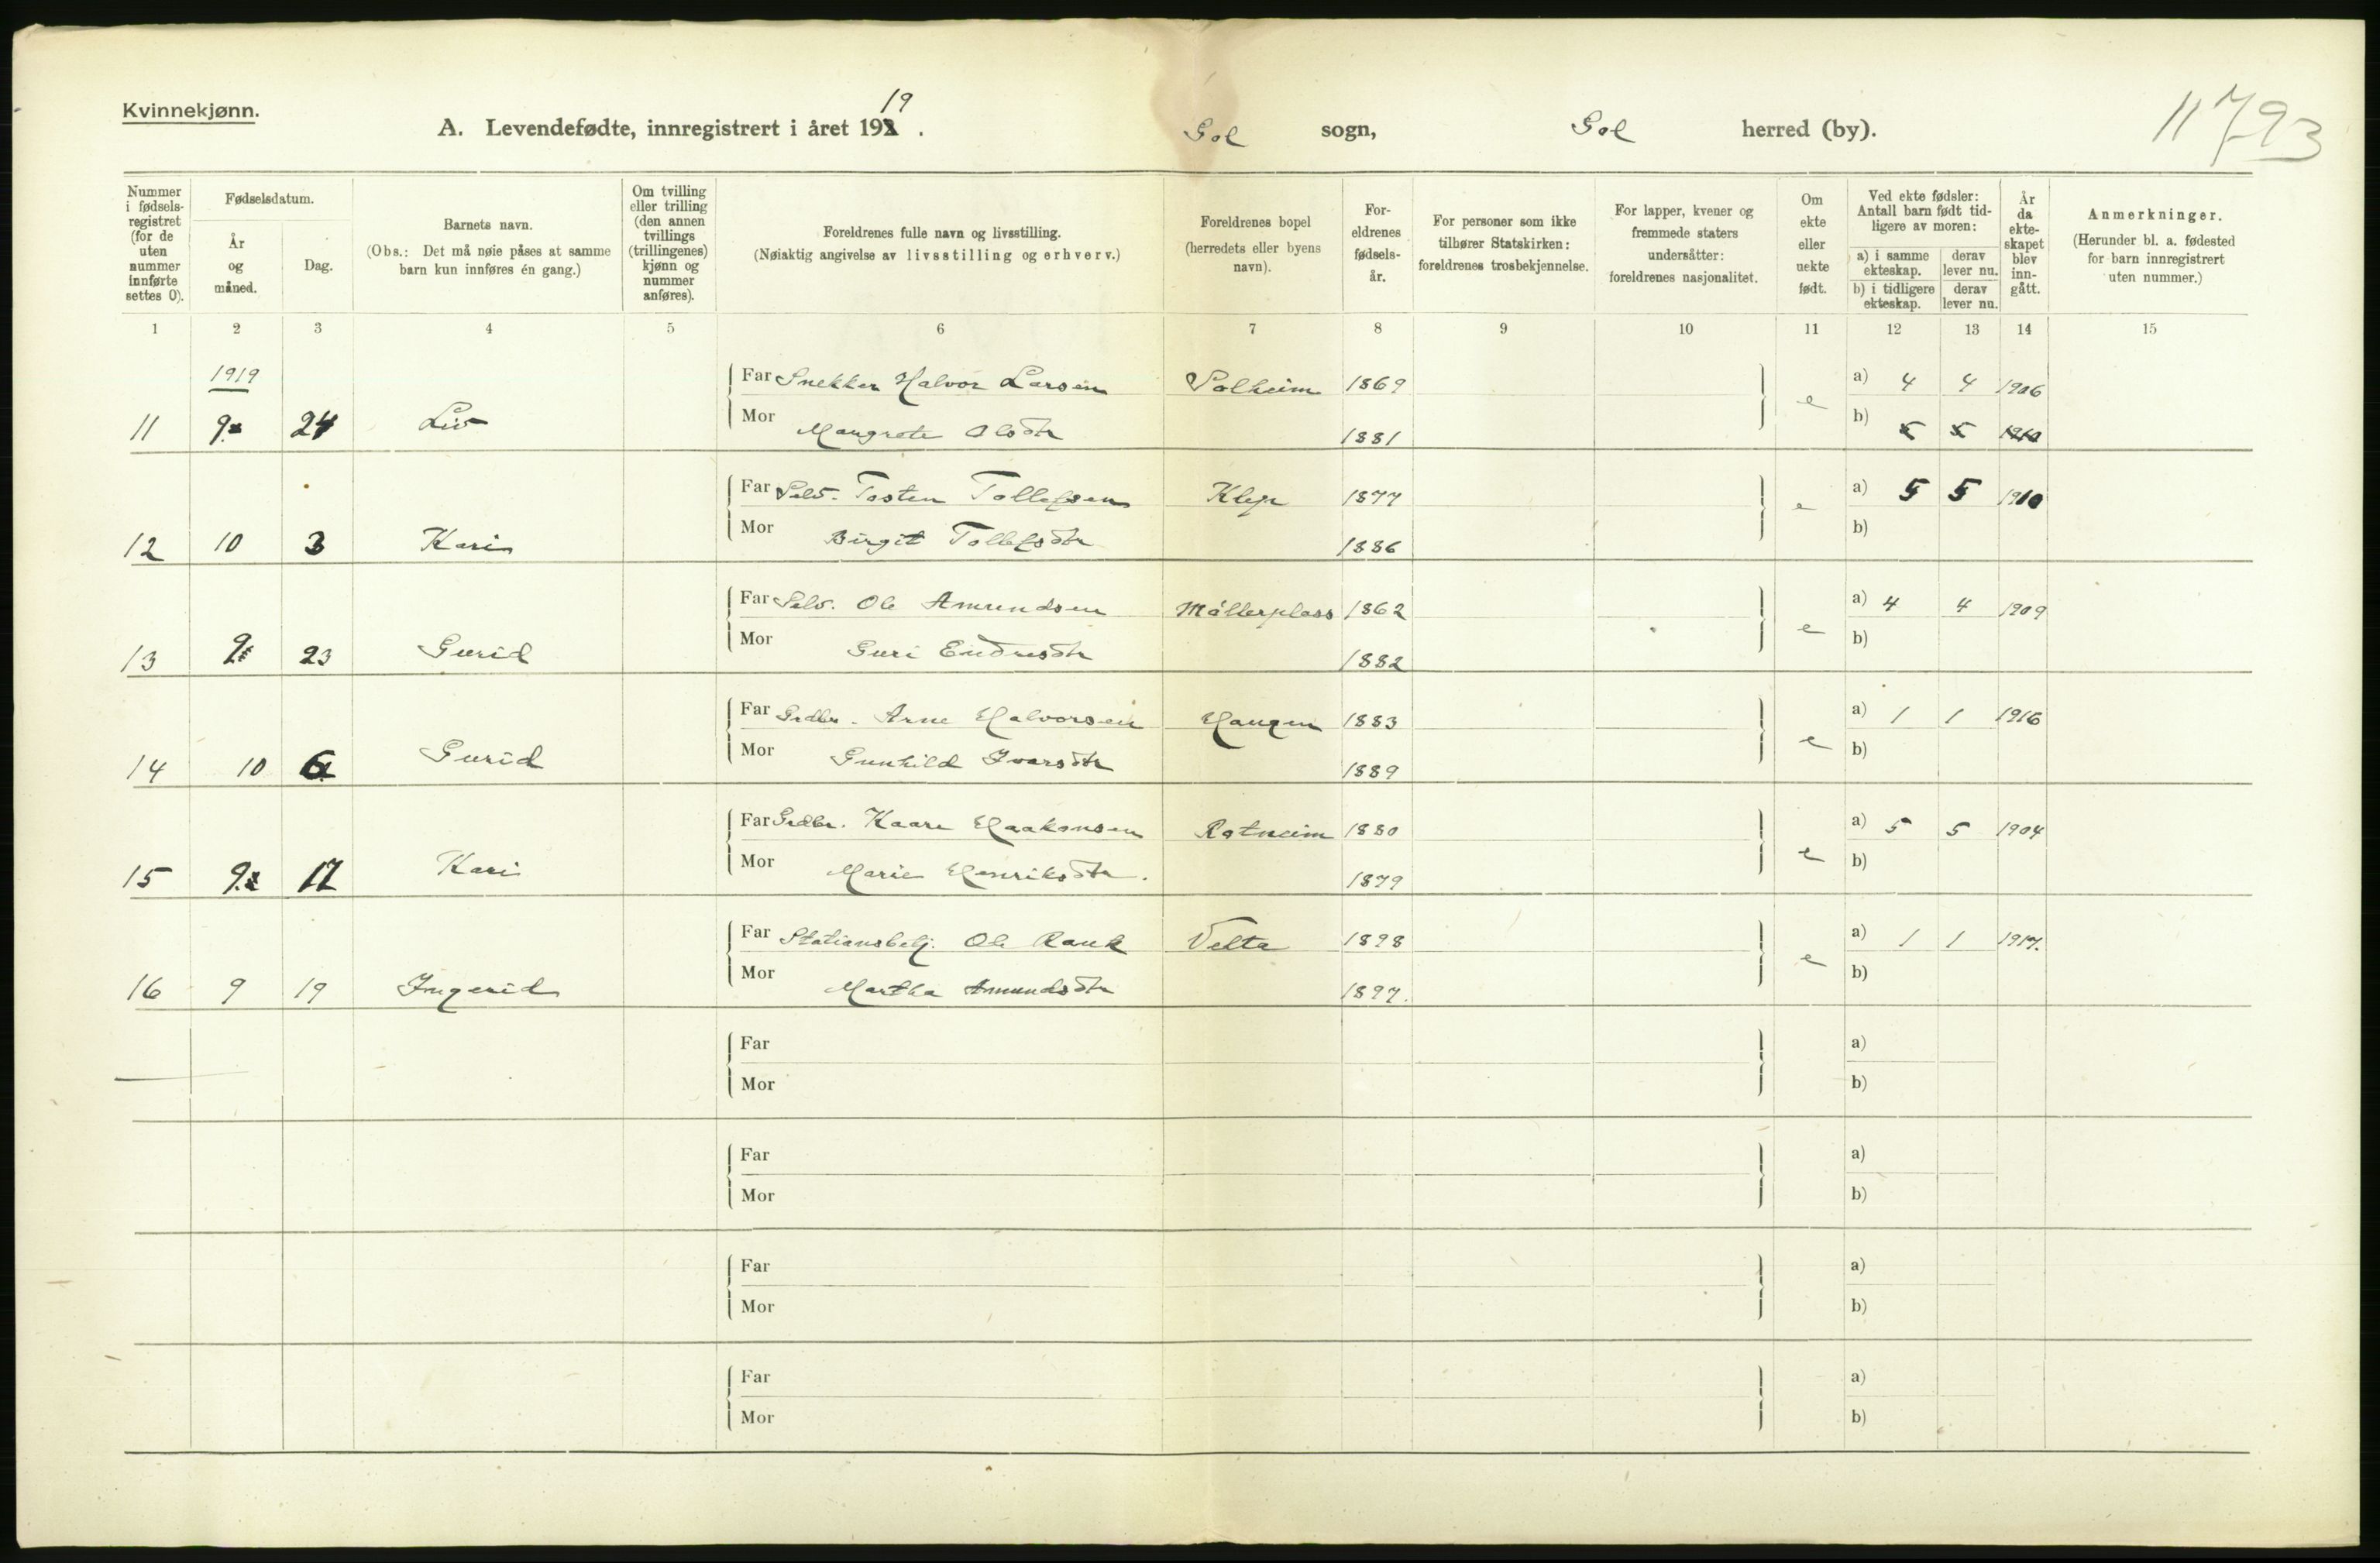 Kvinnekjønn.
A. Levendefødte, innregistrert i året 19 19. Gol sogn, Gol herred (by).
11793
Nummer i fødselsregistret (for de uten nummer innførte settes 0).
Fødselsdatum.
År og måned.
Dag.
Barnets navn.
(Obs.: Det må nøie påses at samme barn kun innføres én gang.)
Om tvilling eller trilling (den annen tvillings (trillingenes) kjønn og nummer anføres).
Foreldrenes fulle navn og livsstilling.
(Nøiaktig angivelse av livsstilling og erhverv.)
Foreldrenes bopel (herredets eller byens navn).
For-eldrenes fødsels-år.
For personer som ikke tilhører Statskirken: foreldrenes trosbekjennelse.
For lapper, kvener og fremmede staters undersåtter: foreldrenes nasjonalitet.
Om ekte eller uekte født.
Ved ekte fødsler: Antall barn født tidligere av moren:
a) i samme ekteskap. derav lever nu.
b) i tidligere ekteskap. derav lever nu.
År da ekte-skapet blev inn-gått.
Anmerkninger.
(Herunder bl. a. fødested for barn innregistrert uten nummer.)
1 2 3 4 5 6 7 8 9 10 11 12 13 14 15
1919
Far Snekker Halvor Larsen Solheim 1869 a) 4 4 1906
11 9 24 Liv Mor Mangrete Olsdtr 1881 e b) 5 5 1910
Far Selv. Tosten Tollefsen Klep 1877 a) 5 5 1910
12 10 3 Kari Mor Birgit Tollefsdtr 1886 e b)
Far Selv. Ole Amundsen Möllerplass 1862 a) 4 4 1909
13 9 23 Gurid Mor Guri Endresdtr 1882 e b)
Far Grdbr. Arne Halvorsen Haugen 1883 a) 1 1 1916
14 10 6 Gurid Mor Gunhild Ivarsdtr 1889 e b)
Far Grdbr. Kaare Haakonsen Rotneim 1880 a) 5 5 1904
15 9 17 Kari Mor Marie Henriksdtr. 1879 e b)
Far Stationsbetj. Ole Rauk Velta 1898 a) 1 1 1917.
16 9 19 Ingerid Mor Martha Amundsdtr 1897. e b)
Far a)
Mor b)
Far a)
Mor b)
Far a)
Mor b)
Far a)
Mor b)